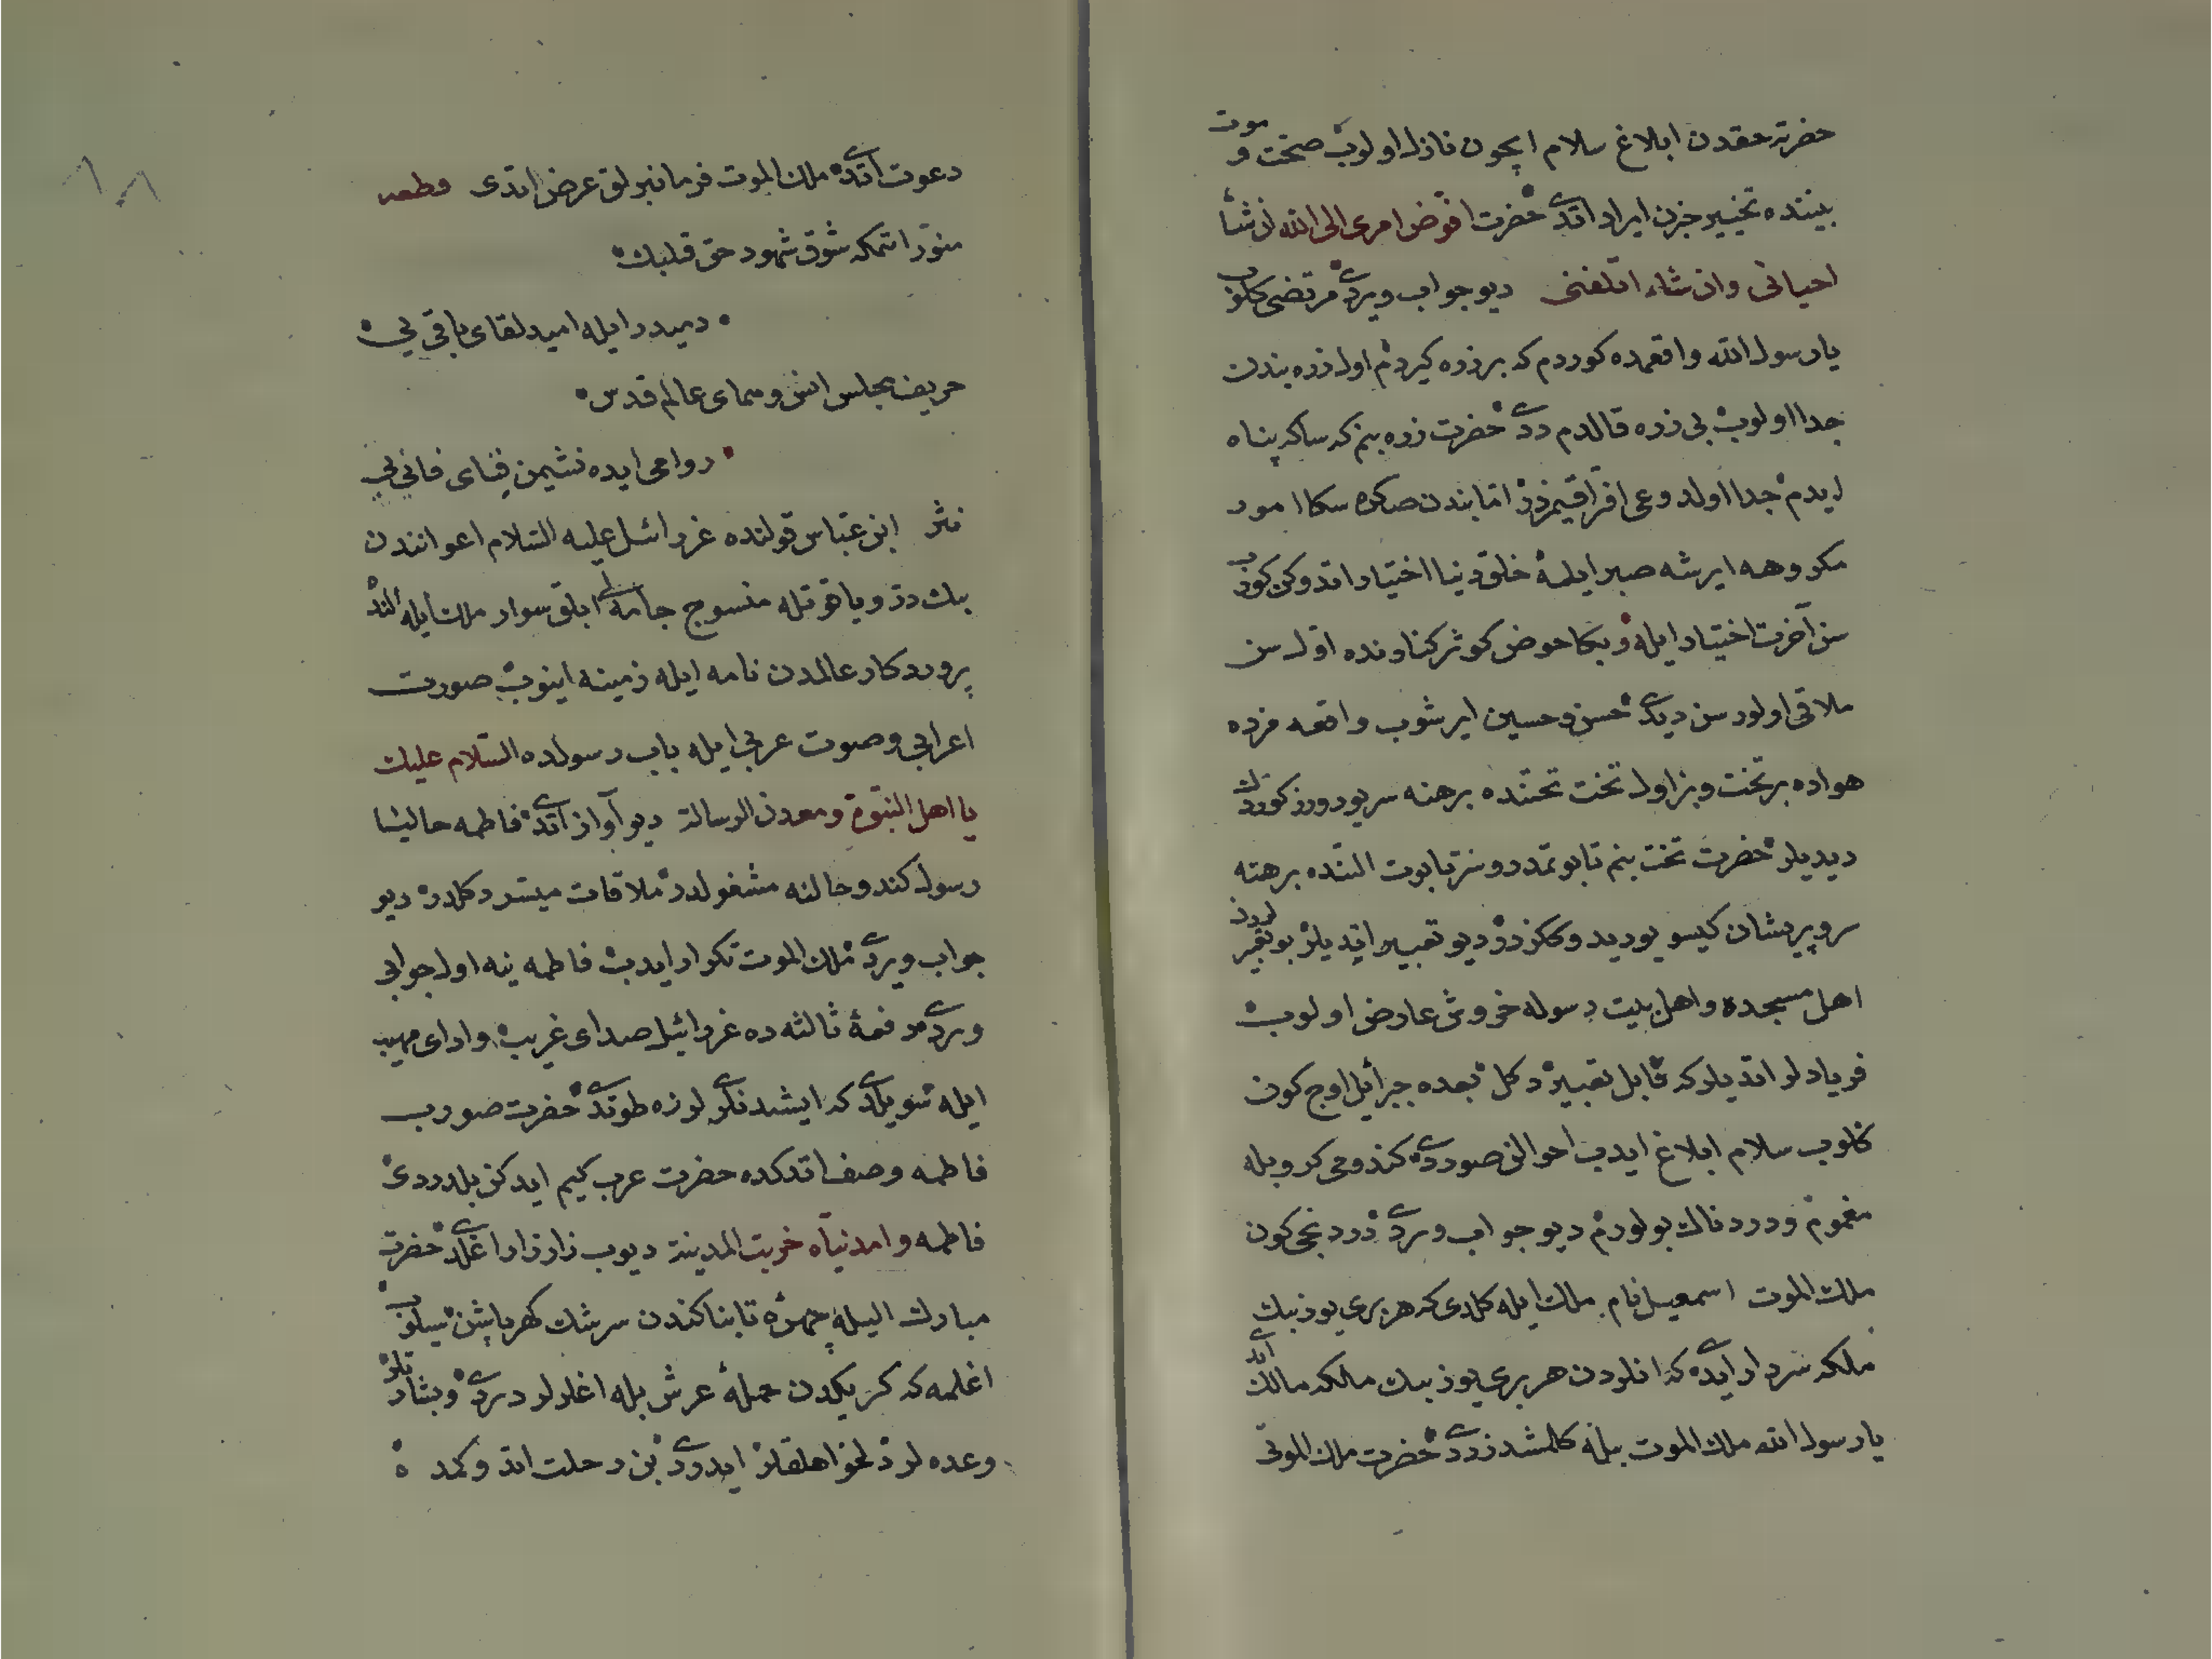 حضرته حقدن ابلاغ سلام ایچون نازل اولوب صحت و موت
بیننده تخییر جزن ایراد اتدی حضرت افوض امری الی الله ان شأ
احیانی وان شاء اتلفنی دیو جواب ویردی مرتضی کلوب
یا رسول الله واقعه‌ده کوردم که بر زره کیردم اول زره بندن
جدا اولوب بی زره قالدم ددی حضرت زره بنم که ساکه پناه
ایدم جدا اولدوغی افراقیمزدر اما بندن صکره سکا امور
مکروهه ایرشه صبر ایله خلق دنیا اختیار اتدوکن کورب
سن آخرت اختیار ایله و بکا حوض کوثر کنارنده اول سن
ملاقی اولورسن دیدی حسن و حسین ایرشوب واقعه مزده
هواده بر تخت و بز اول تخت تحتنده برهنه سر یورورز کوردک
دیدیلر حضرت تخت بنم تابوتمدر و سز تابوت التنده برهنه
سر و پریشان کیسو یوریدوککزدر دیو تعبیر اتدیلر بو تقریردن
اهل مسجده و اهل بیت رسوله خروش عارض اولوب
فریادلر اتدیلر که قابل تعبیر دکل بعده جبرائیل اوج کون
کلوب سلام ابلاغ ایدب احوالنی صوردی کندومی کروبله
مغموم و دردناک بولورم دیو جواب ویردی دردنجی کون
ملک الموت اسمعیل نام ملک ایله کلدی که هر بری یوز بیک
ملکه سردار ایدی که انلردن هر بری یوز بیک ملکه مالک ایدی
یا رسول الله ملک الموت بیله کلمشدر ددی حضرت ملک الموتی
دعوت اتدی ملک الموت فرمانبرلق عرض اتدی قطعه
منور اتمکه شوق شهود حق قلبک
دمیدر ایله امید لقای باقی یی
حریف مجلس انس و سمای عالم قدس
روامی ایده نشیمن فنای فانی یی
نثر ابن عباس قولنده عزرائیل علیه السلام اعوانندن
بیک در و یاقوتله منسوج جامه‌لی ابلق سوار ملک ایله الند
پروردکار عالمدن نامه ایله زمینه اینوب صورت
اعرابی و صوت عربی ایله باب رسولده السلام علیک
یا اهل النبوة ومعدن الرسالة دیو آواز اتدی فاطمه حالیا
رسول کندو حالنه مشغولدر ملاقات میسر دکلدر دیو
جواب ویردی ملک الموت تکرار ایدب فاطمه ینه اول جوابی
وردی دفعهٔ ثالثه‌ده عزرائیل صدای غریب و ادای مهیب
ایله سویلدی که ایشدنلری لرزه طوتدی حضرت صورب
فاطمه وصف اتدکده حضرت عرب کیم ایدکن بلدردی
فاطمه وامدنیاه خربت المدینة دیوب زار زار اغلدی حضرت
مبارک الیله چهرهٔ تابناکندن سرشک کهرپاشن سیلوب
اغلمه که کریکدن حملهٔ عرش بله اغلرلر دردی و بشارتلر
وعده‌لر دلخواهلقلر ایدردی بن رحلت اتدوکمد ه